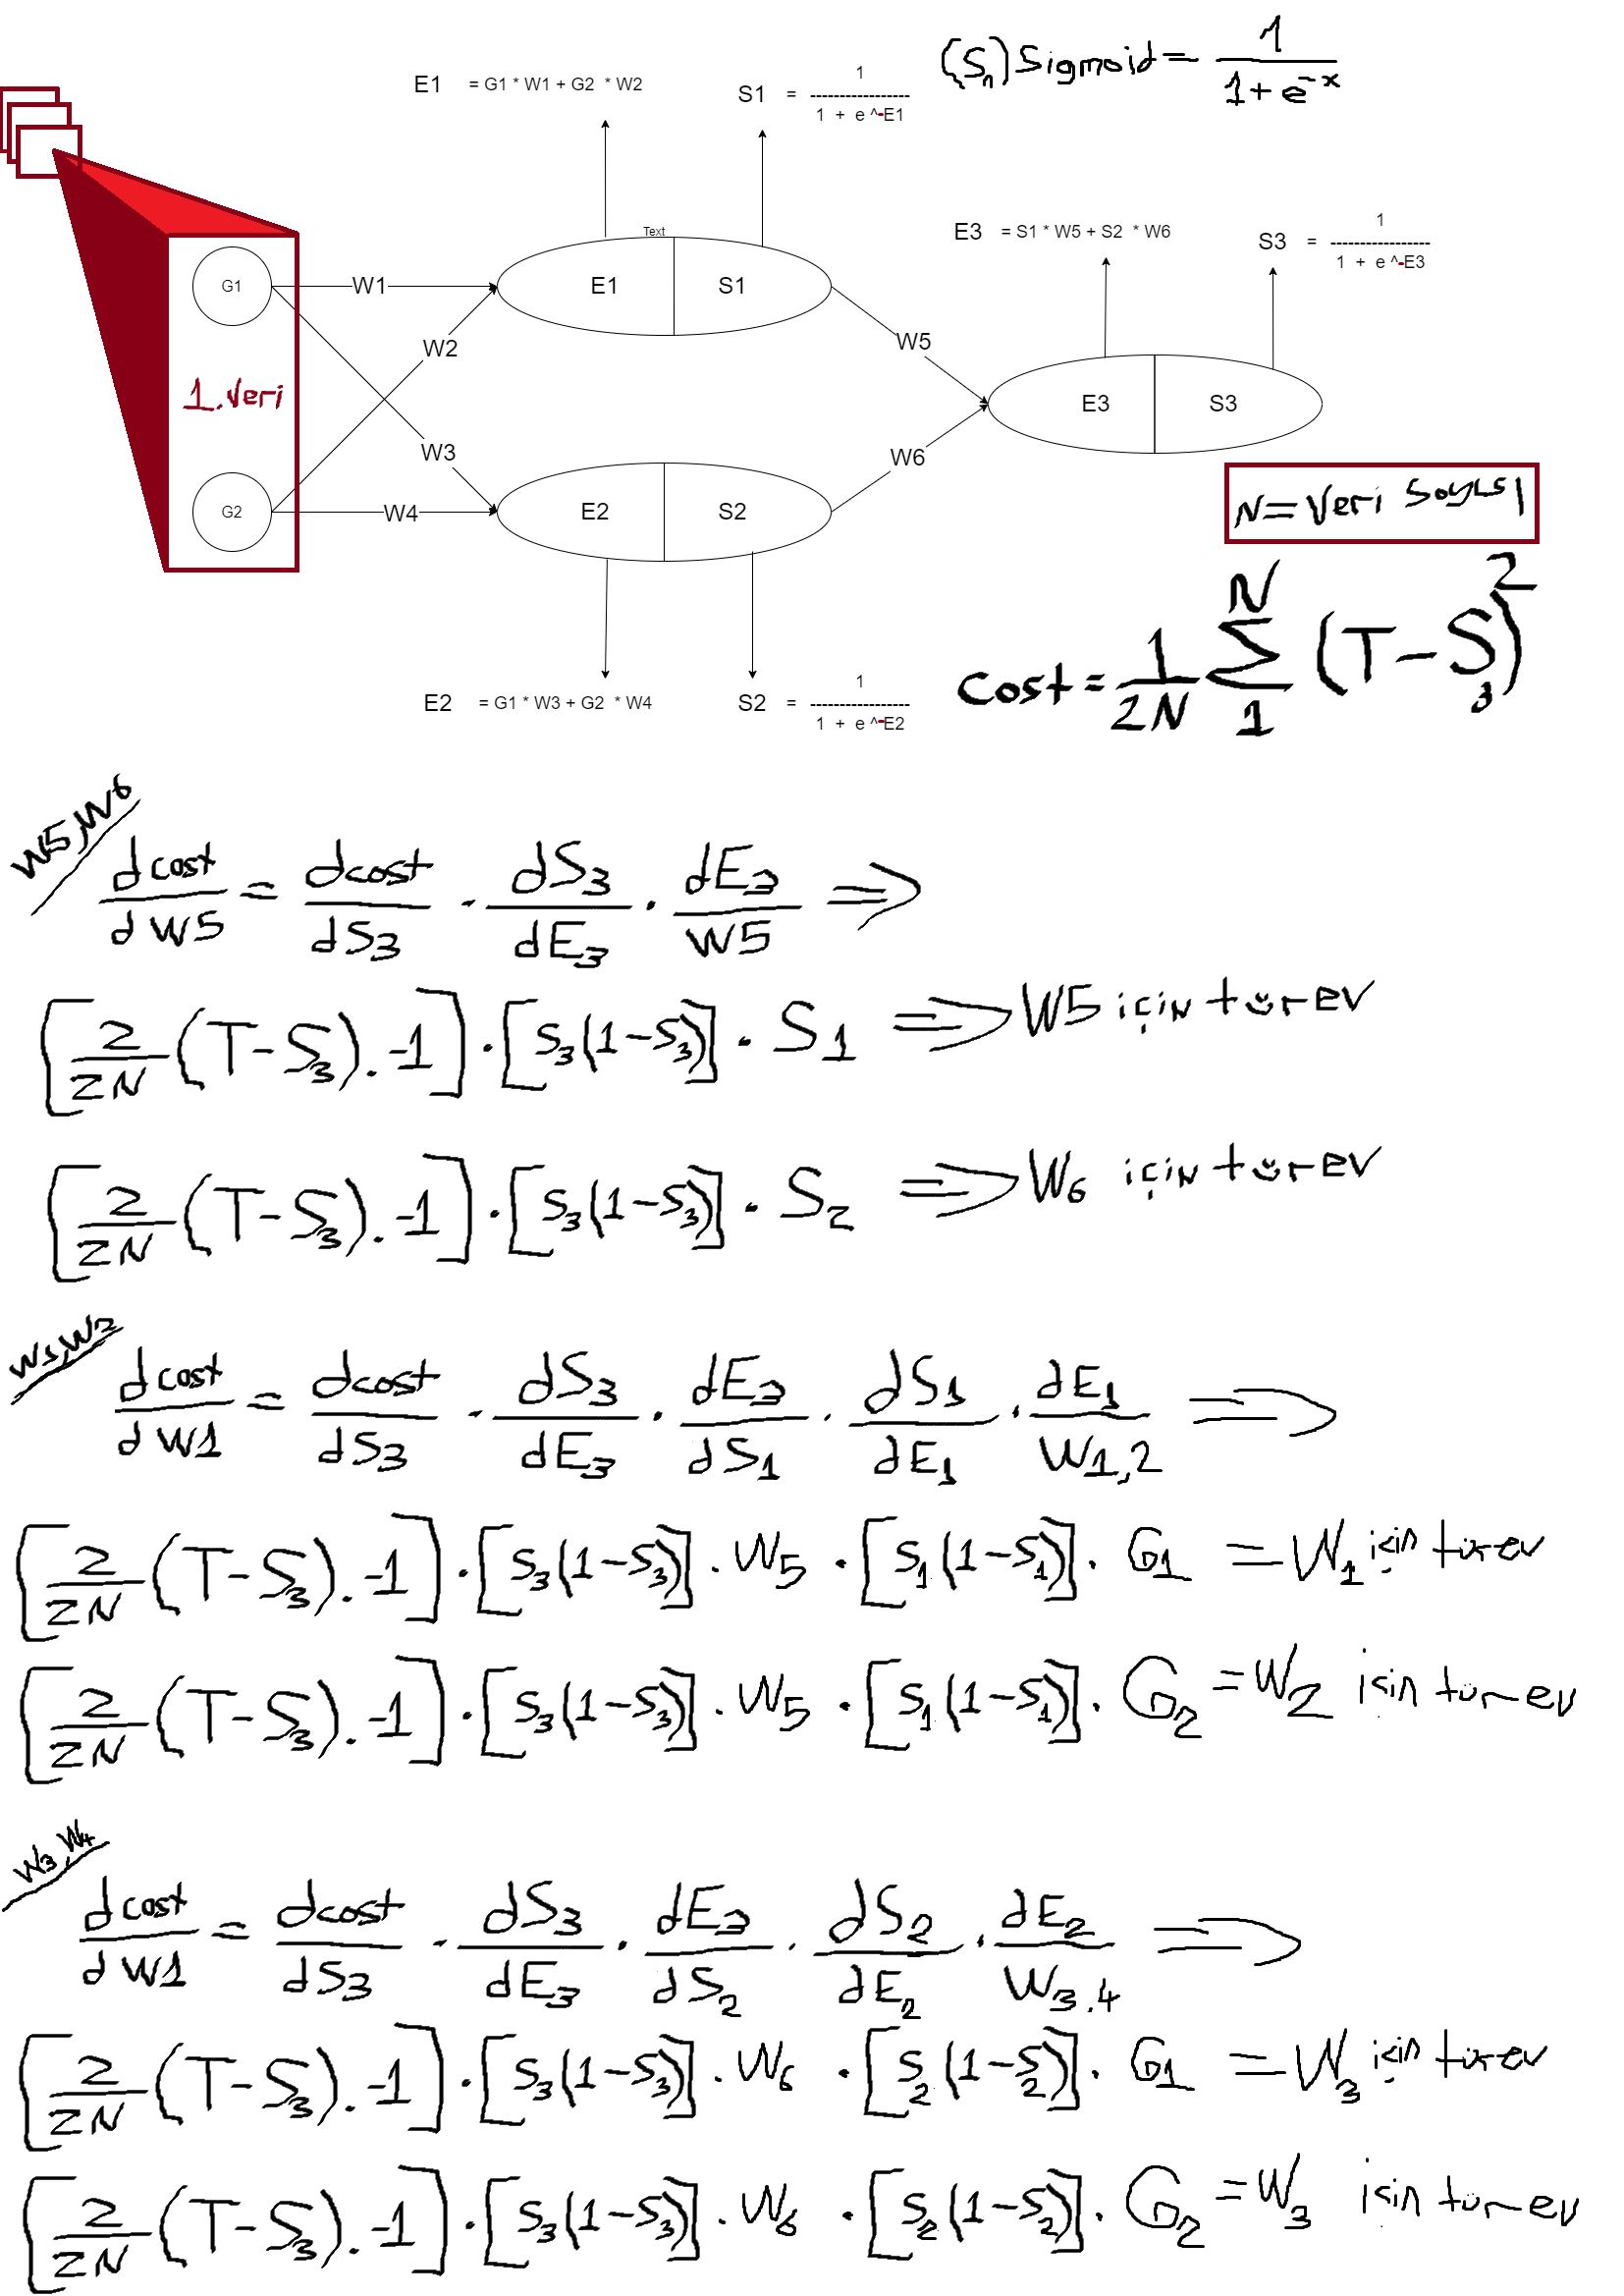 (Sn) Sigmoid = 1 / (1 + e^-x)
E1 = G1 * W1 + G2 * W2
S1 = 1 / (1 + e ^-E1)
E3 = S1 * W5 + S2 * W6
S3 = 1 / (1 + e ^-E3)
Text
G1 W1 E1 S1
W2
W5
1.veri
E3 S3
W3
W6
G2 W4 E2 S2
N = Veri Sayısı
E2 = G1 * W3 + G2 * W4
S2 = 1 / (1 + e ^-E2)
cost = 1/2N Σ_1^N (T - S3)^2
W5,W6
dcost/dW5 = dcost/dS3 . dS3/dE3 . dE3/W5 =>
[2/2N (T-S3).-1] . [S3(1-S3)] . S1 => W5 için türev
[2/2N (T-S3).-1] . [S3(1-S3)] . S2 => W6 için türev
W1,W2
dcost/dW1 = dcost/dS3 . dS3/dE3 . dE3/dS1 . dS1/dE1 . dE1/W1,2 =>
[2/2N (T-S3).-1] . [S3(1-S3)] . W5 . [S1(1-S1)] . G1 = W1 için türev
[2/2N (T-S3).-1] . [S3(1-S3)] . W5 . [S1(1-S1)] . G2 = W2 için türev
W3,W4
dcost/dW1 = dcost/dS3 . dS3/dE3 . dE3/dS2 . dS2/dE2 . dE2/W3.4 =>
[2/2N (T-S3).-1] . [S3(1-S3)] . W6 . [S2(1-S2)] . G1 = W3 için türev
[2/2N (T-S3).-1] . [S3(1-S3)] . W6 . [S2(1-S2)] . G2 = W3 için türev